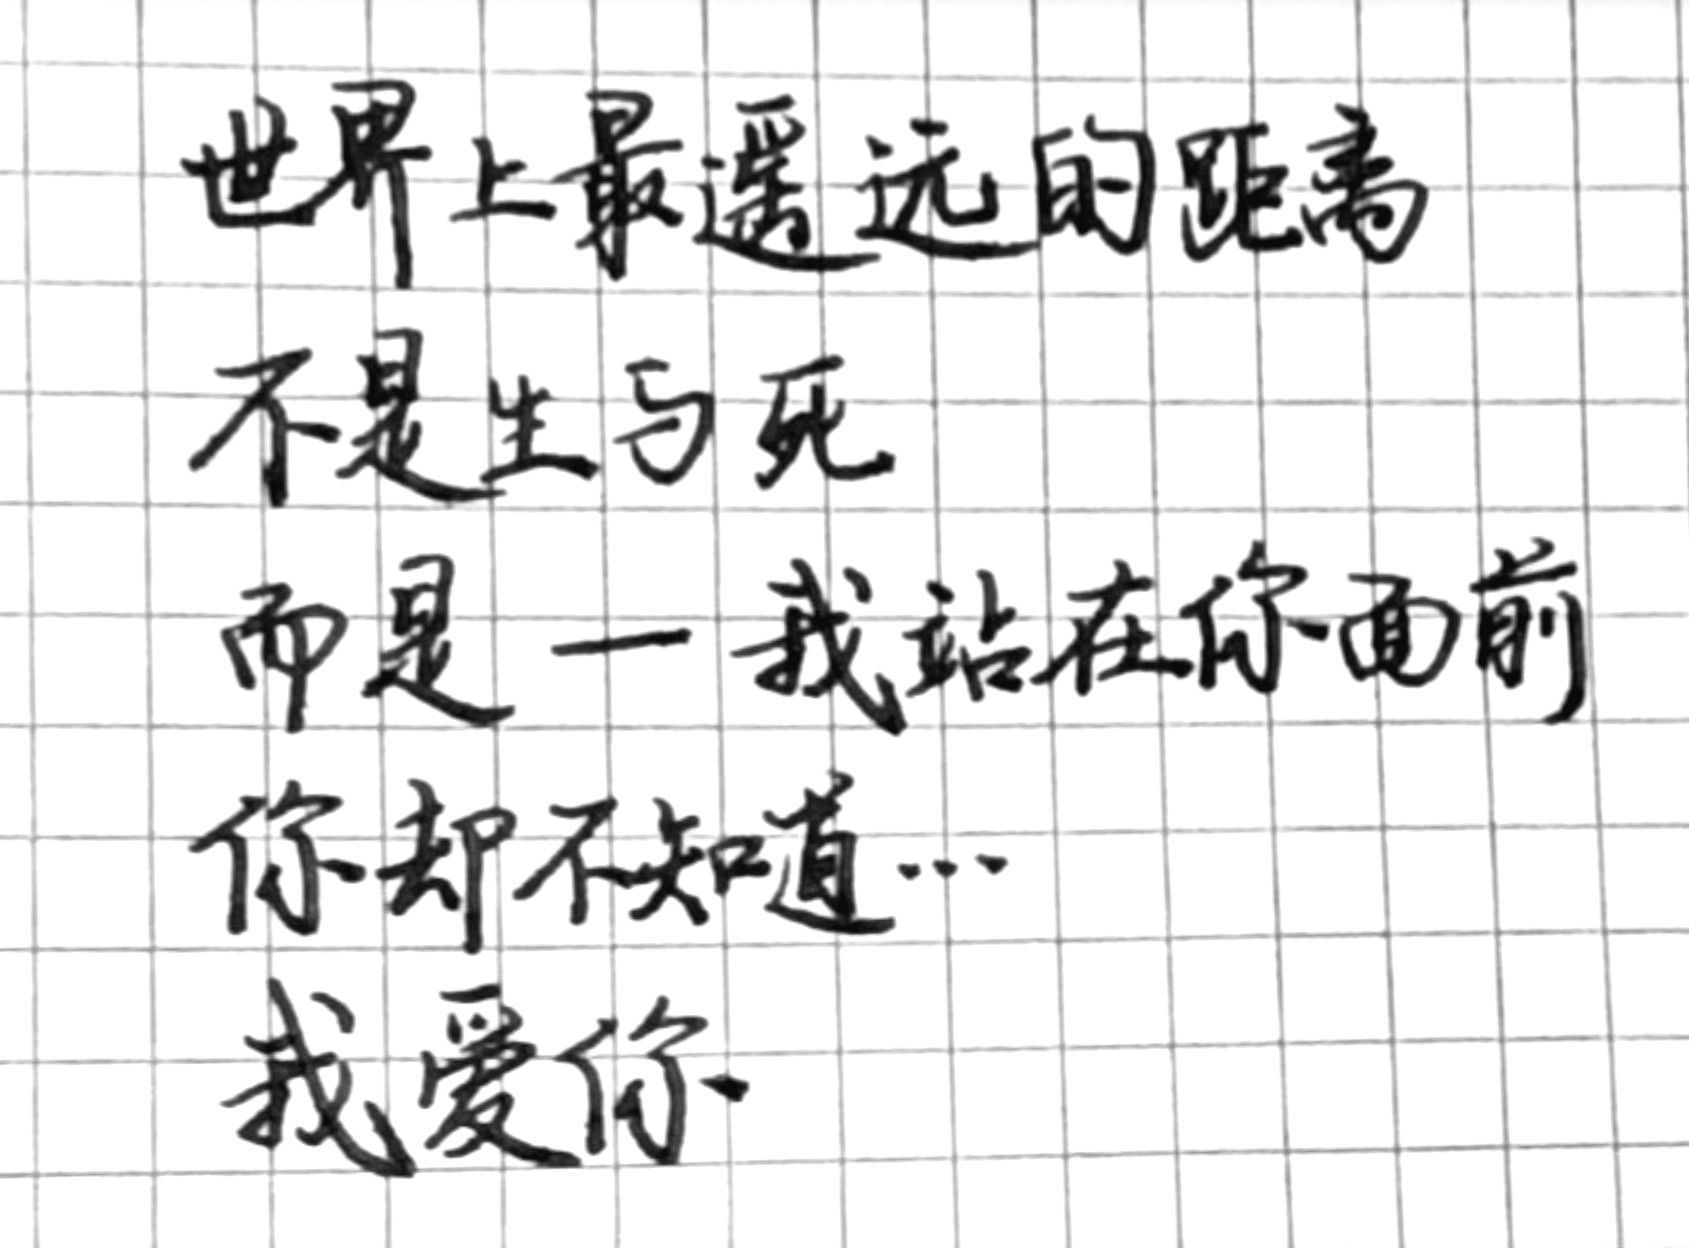 世界上最遥远的距离
不是生与死
而是一我站在你面前
你却不知道…
我爱你